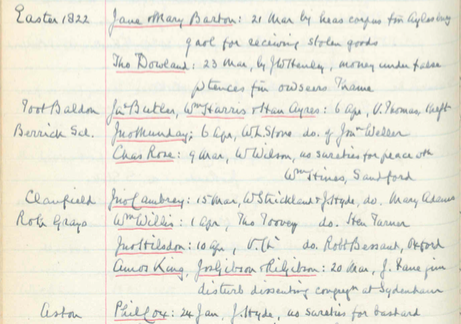 Easter 1822 Jane & Mary Barton: 21 Mar by heas corpus fm Aylesbury
gaol for receiving stolen goods
Tho Dowland: 23 Mar, by J W Henley, money under false
ptences fm ovseers Thame
Toot Baldon Jn Butler, Wm Harris & Han Ayres: 6 Apr, V. Thomas theft
Berrick Sal. Jno Munday: 6 Apr, Wh Stone do. of Jon Weller
Chas Rose: 9 Mar, W Wilson, no sureties for peace wth
Wm Hines, Sandford
Clanfield Jno Cambray: 15 Mar, W Strickland & J Hyde, do. Mary Adams
Rothf Grays Wm Willis: 1 Apr, Tho Toovey do. Hen Turner
Jno Hilsdon: 10 Apr, do. Robt Bessant, Oxford
Amos King, Jos Gibson & Ri Gibson: 20 Mar, J. Fane jun
disturb dissenting congregn at Sydenham
Aston Phil Cox: 24 Jan, J. Hyde, no sureties for bastard